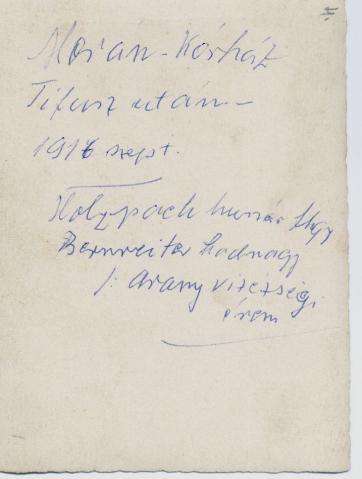 Moșan - Kórház
Tifusz után -
1916 szept.
Holzpach huszár fhgy
Bernreiter hadnagy
/: Arany vitézségi
érem